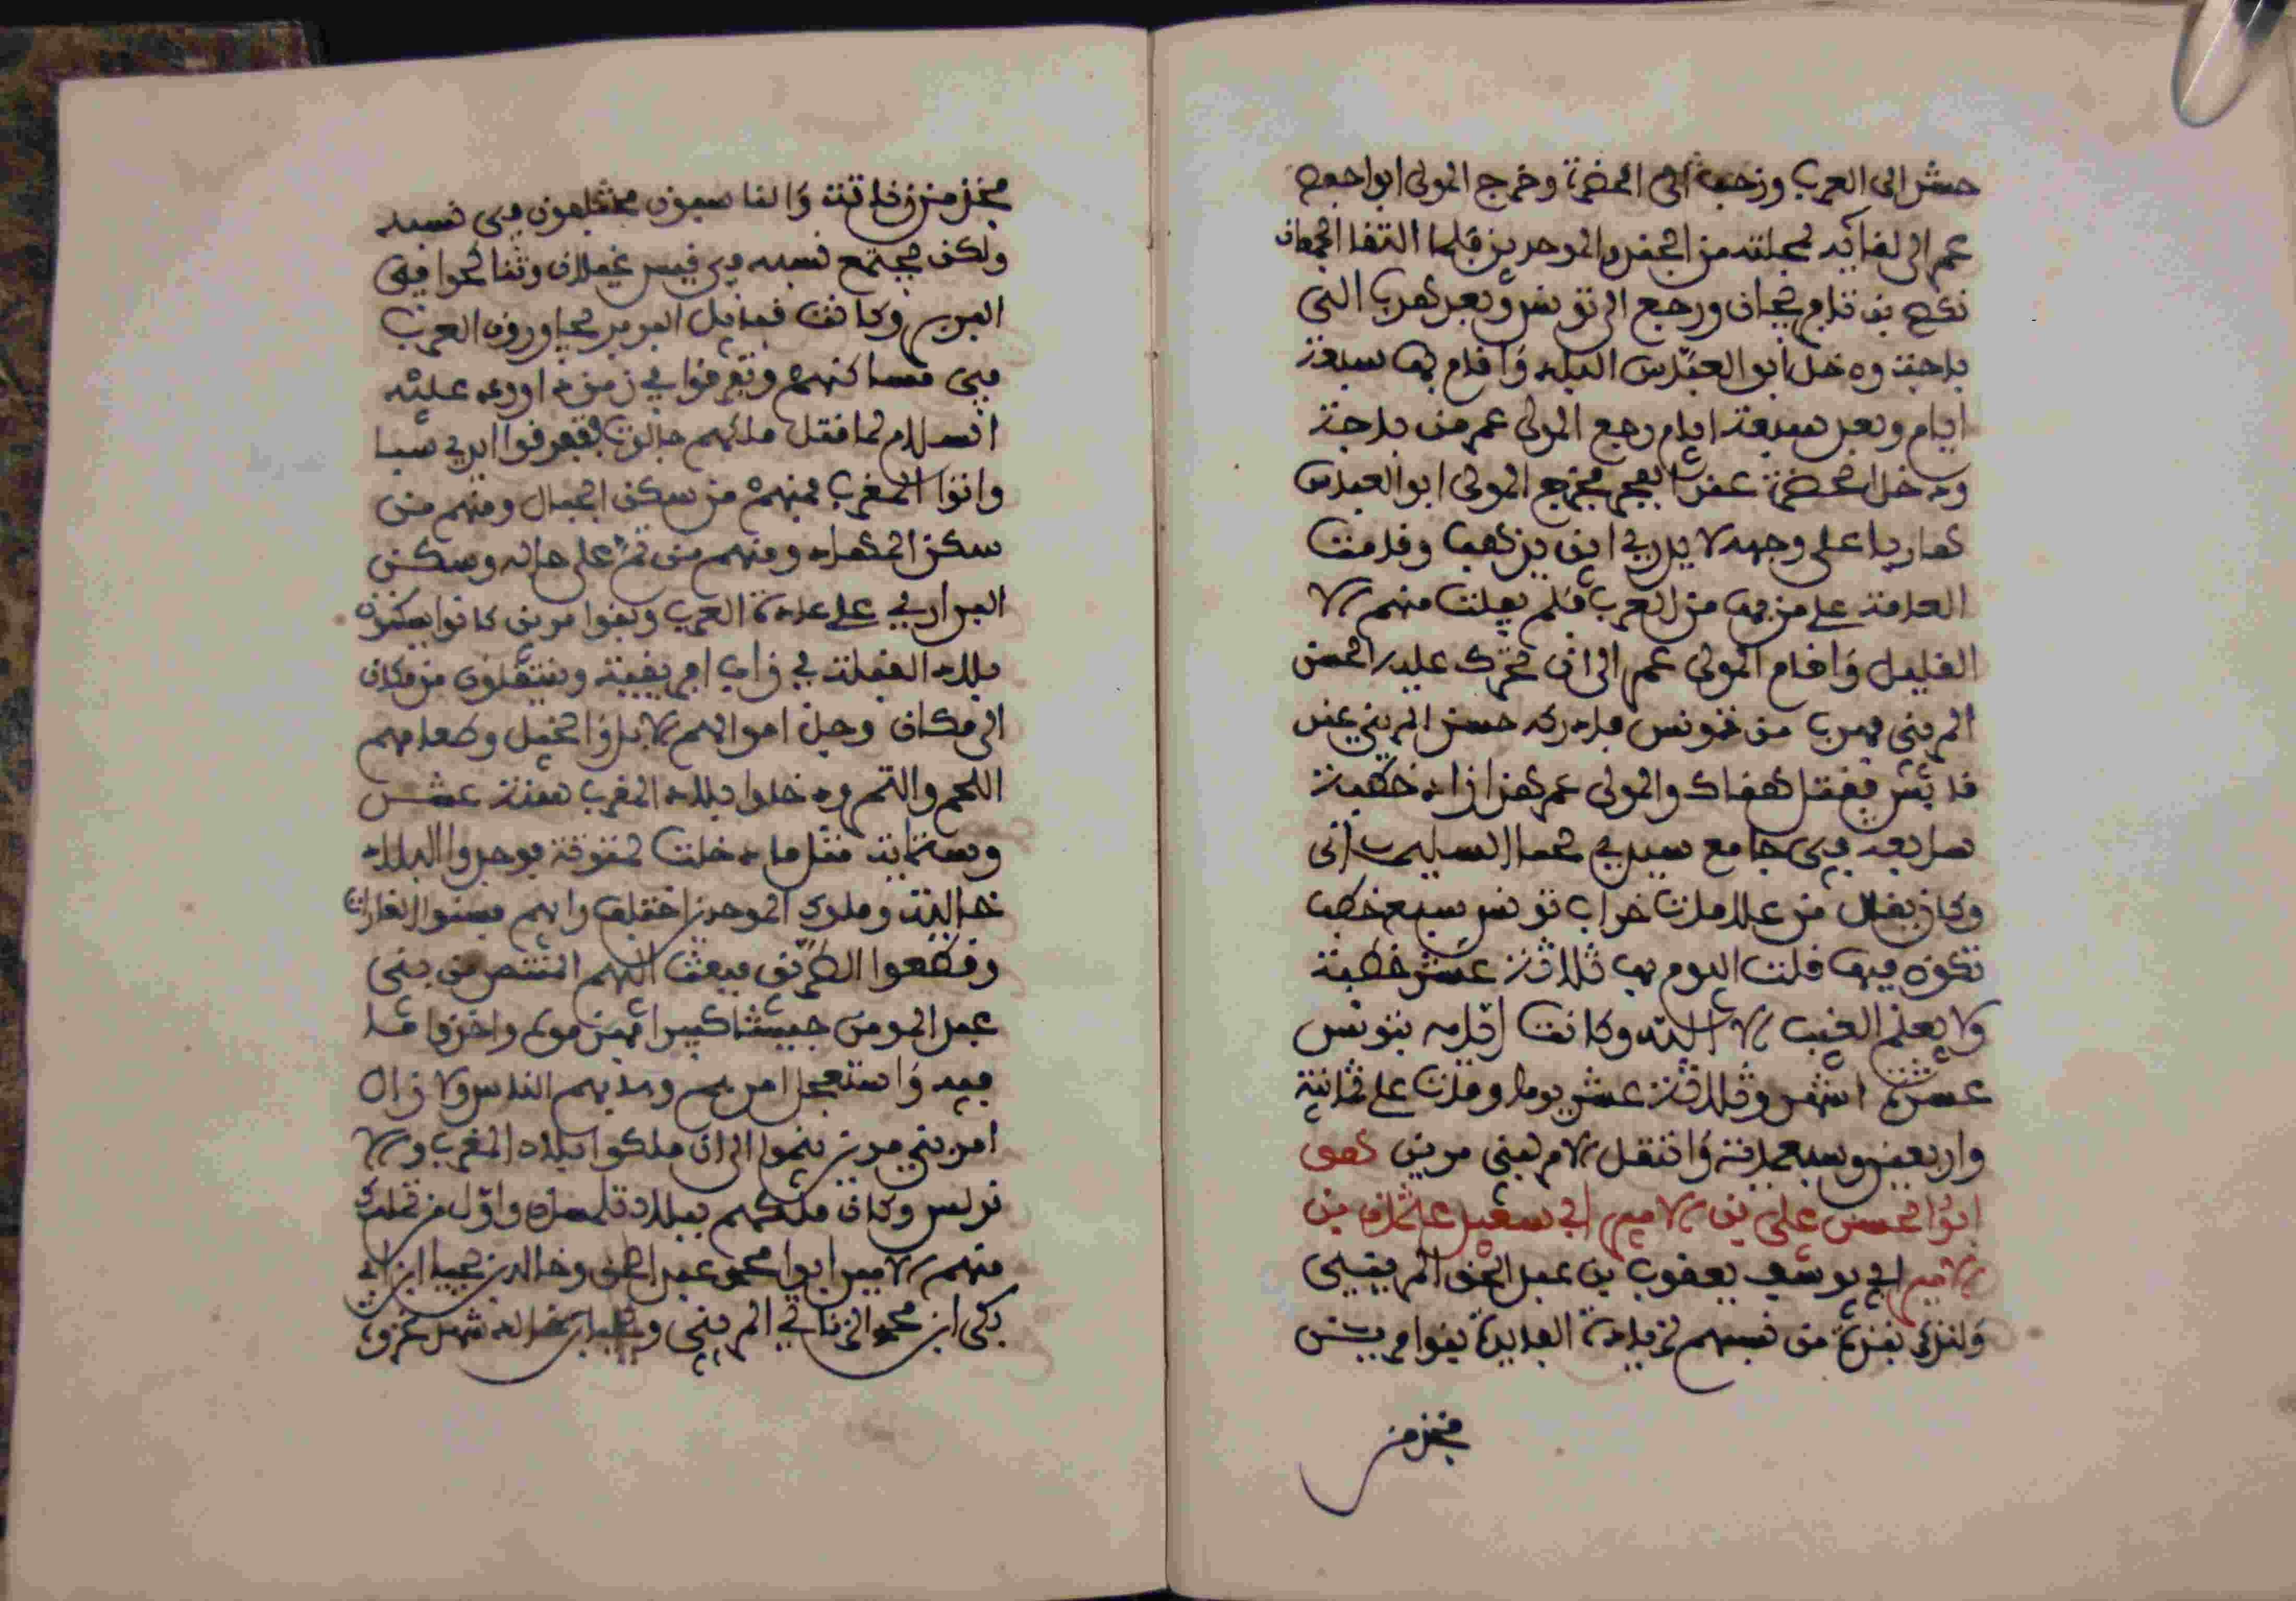 حشر الى العرب وزحف الى الحضرة وخرج المولى ابو احفص
عمر الى لقائه بمحلته من الجند والموحدين فلما التقا الجمعان
نكص بن تافراجان ورجع الى تونس وبعد هرب الى
باجة ودخل ابو العباس البلد واقام بها سبعة
ايام وبعد سبعة ايام رجع المولى عمر من باجة
ودخل الحضرة عند الفجر فخرج المولى ابو العباس
هاربا على وجهه لا يدري اين يذهب وقامت
العامة على من بها من العرب فلم يفلت منهم الا
القليل واقام المولى عمر الى ان تحرك عليه الحسن
المريني فهرب من تونس فادركه حسن المريني عند
قابس فقتل هناك والمولى عمر هذا زاد خطبة
سابعة في جامع سيدي
وكان يقال من علامات خراب تونس سبع خطب
تكون فيها قلت اليوم بها ثلاثة عشر خطبة
ولا يعلم الغيب الا الله وكانت اقامه بتونس
عشرة اشهر وثلاثة عشر يوما ومات على ثمانية
واربعين وسبعماية وانتقل الامر لبني مرين وهو
ابو الحسن علي بن الامير ابي سعيد عثمان بن
الامير ابي يوسف يعقوب بن عبد الحق المريني
ولنذكر نبذة من نسبهم لزيادة الفايدة بنوا مرين
فخذ من
فخذ من زناتة والناسبون مختلفون في نسبه
ولكن يجتمع نسبه في قيس غيلان وتناكحوا في
البربر وكانت قبايل البربر يجاورون العرب
في مساكنهم وتفرقوا في زمن داوود عليه
السلام لما قتل ملكهم جالوت فتفرقوا ايدي سبا
واتوا المغرب فمنهم من سكن الجبال ومنهم من
سكن الصحراء ومنهم من تم على حاله وسكن
البراري على عادة العرب وبنوا مرين كانوا يسكنون
بلاد القبلة في زاب افريقية وينتقلون من مكان
الى مكان وجل اموالهم الابل والخيل وطعامهم
اللحم والتمر ودخلوا بلاد المغرب سنة عشر
وستماية مثل ما دخلت لمتونة فوجدوا البلاد
خالية وملوك الموحدين اختلف رايهم فشنوا الغارات
وقطعوا الطريق فبعث اليهم المنتصر من بني
عبد المومن جيشا كبيرا فهزموه واخذوا ما
فيه واستفحل امرهم وهابهم الناس ولا زال
امر بني مرين ينموا الى ان ملكوا بلاد المغرب والا
ندلس وكان ملكهم ببلاد تلمسان واول من تملك
منهم الامير ابوا محمد عبد الحق وخالد بن يحيا ابن ابي
بكر ابن محمد الزناتي المريني